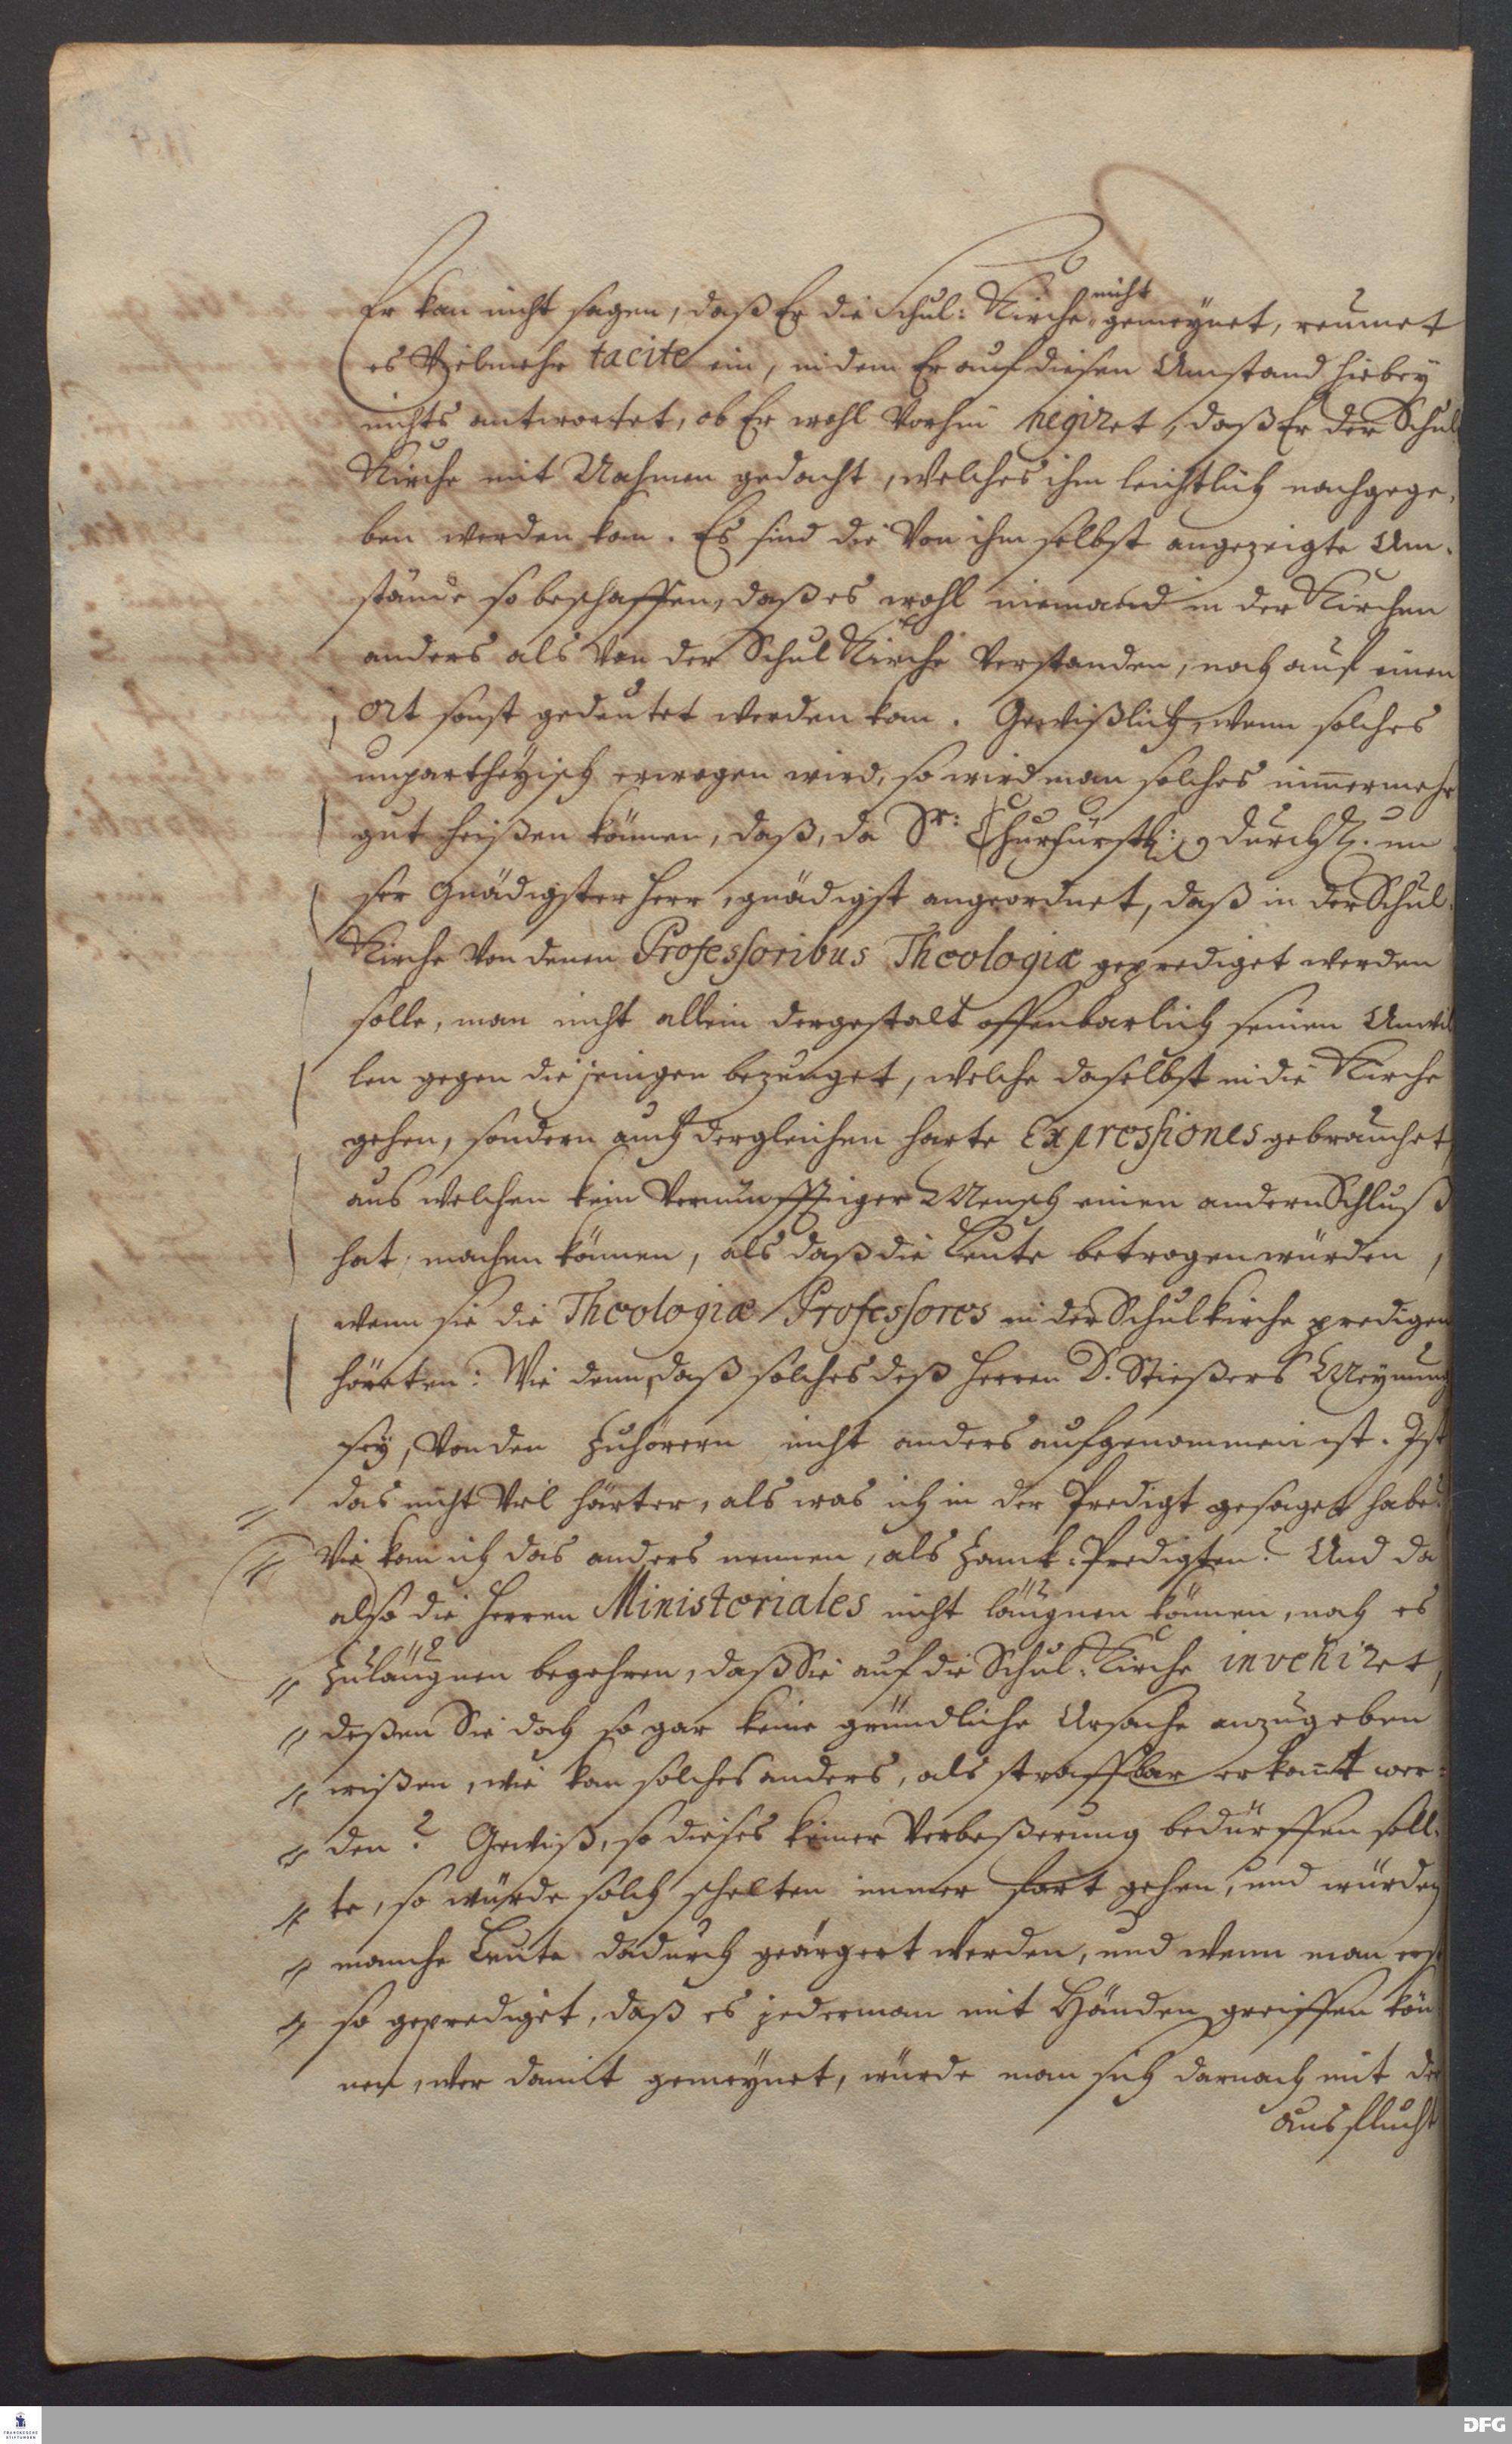 Er kan nicht sagen, daß Er die Schul: Kirche nicht gemeynet, reumet
es Vielmehr tacite ein, in dem Er auf diesen Umstand hiebey
nichts antwortet, ob Er wohl Vorhin negiret, daß Er der Schul
Kirche mit Nahmen gedacht, welches ihm leichtlich nachgege-
ben werden kan. Es sind die Von ihm selbst angezeigte Um-
stände so beschaffen, daß es wohl niemand in der Kirchen
anders als Von der Schul Kirche Verstanden, noch auf einen
Ort sonst gedeutet werden kan. Gewißlich, wenn solches
unpartheyisch erwogen wird, so wird man solches nimmermehr
gut heißen können, daß, da Sr: Churfürstl: Durchl. un
ser Gnädigster Herr, gnädigst angeordnet, daß in der Schul-
Kirche Von denen Professoribus Theologiæ geprediget werden
solle, man nicht allein dergestalt offenbarlich seinen Unwil
len gegen die jenigen bezeuget, welche daselbst in die Kirche
gehen, sondern auch dergleichen harte Expressiones gebrauchet,
aus welchen kein Vernünfftiger Mensch einen andern Schluß
hat machen können, als daß die Leute betrogen würden,
wenn sie die Theologiæ Professores in der Schulkirche predigen
höreten: Wie denn, daß solches deß Herren D. Stießers Meynung
sey, Von den Zuhörern nicht anders aufgenommen ist. Ist
das nicht Viel härter, als was ich in der Predigt gesaget habe?
Wie kan ich das anders nennen, als Zanck-Predigten? Und da
also die Herren Ministeriales nicht läugnen können, noch es
zuläugnen begehren, daß Sie auf die Schul-Kirche invehiret,
deßen Sie doch so gar keine gründliche Ursache anzugeben
wißen, wie kan solches anders, als straffbar erkannt wer-
den? Gewiß, so dieses keiner Verbeßerung bedürffen soll-
te, so würde solch schelten immer fort gehen, und würden
manche Leute dadurch geärgert werden, und wenn man erst
so geprediget, daß es jederman mit Händen greiffen kön
nen, wer damit gemeynet, würde man sich darnach mit der
Ausflucht
FRANCKESCHE
STIFTUNGEN
DFG